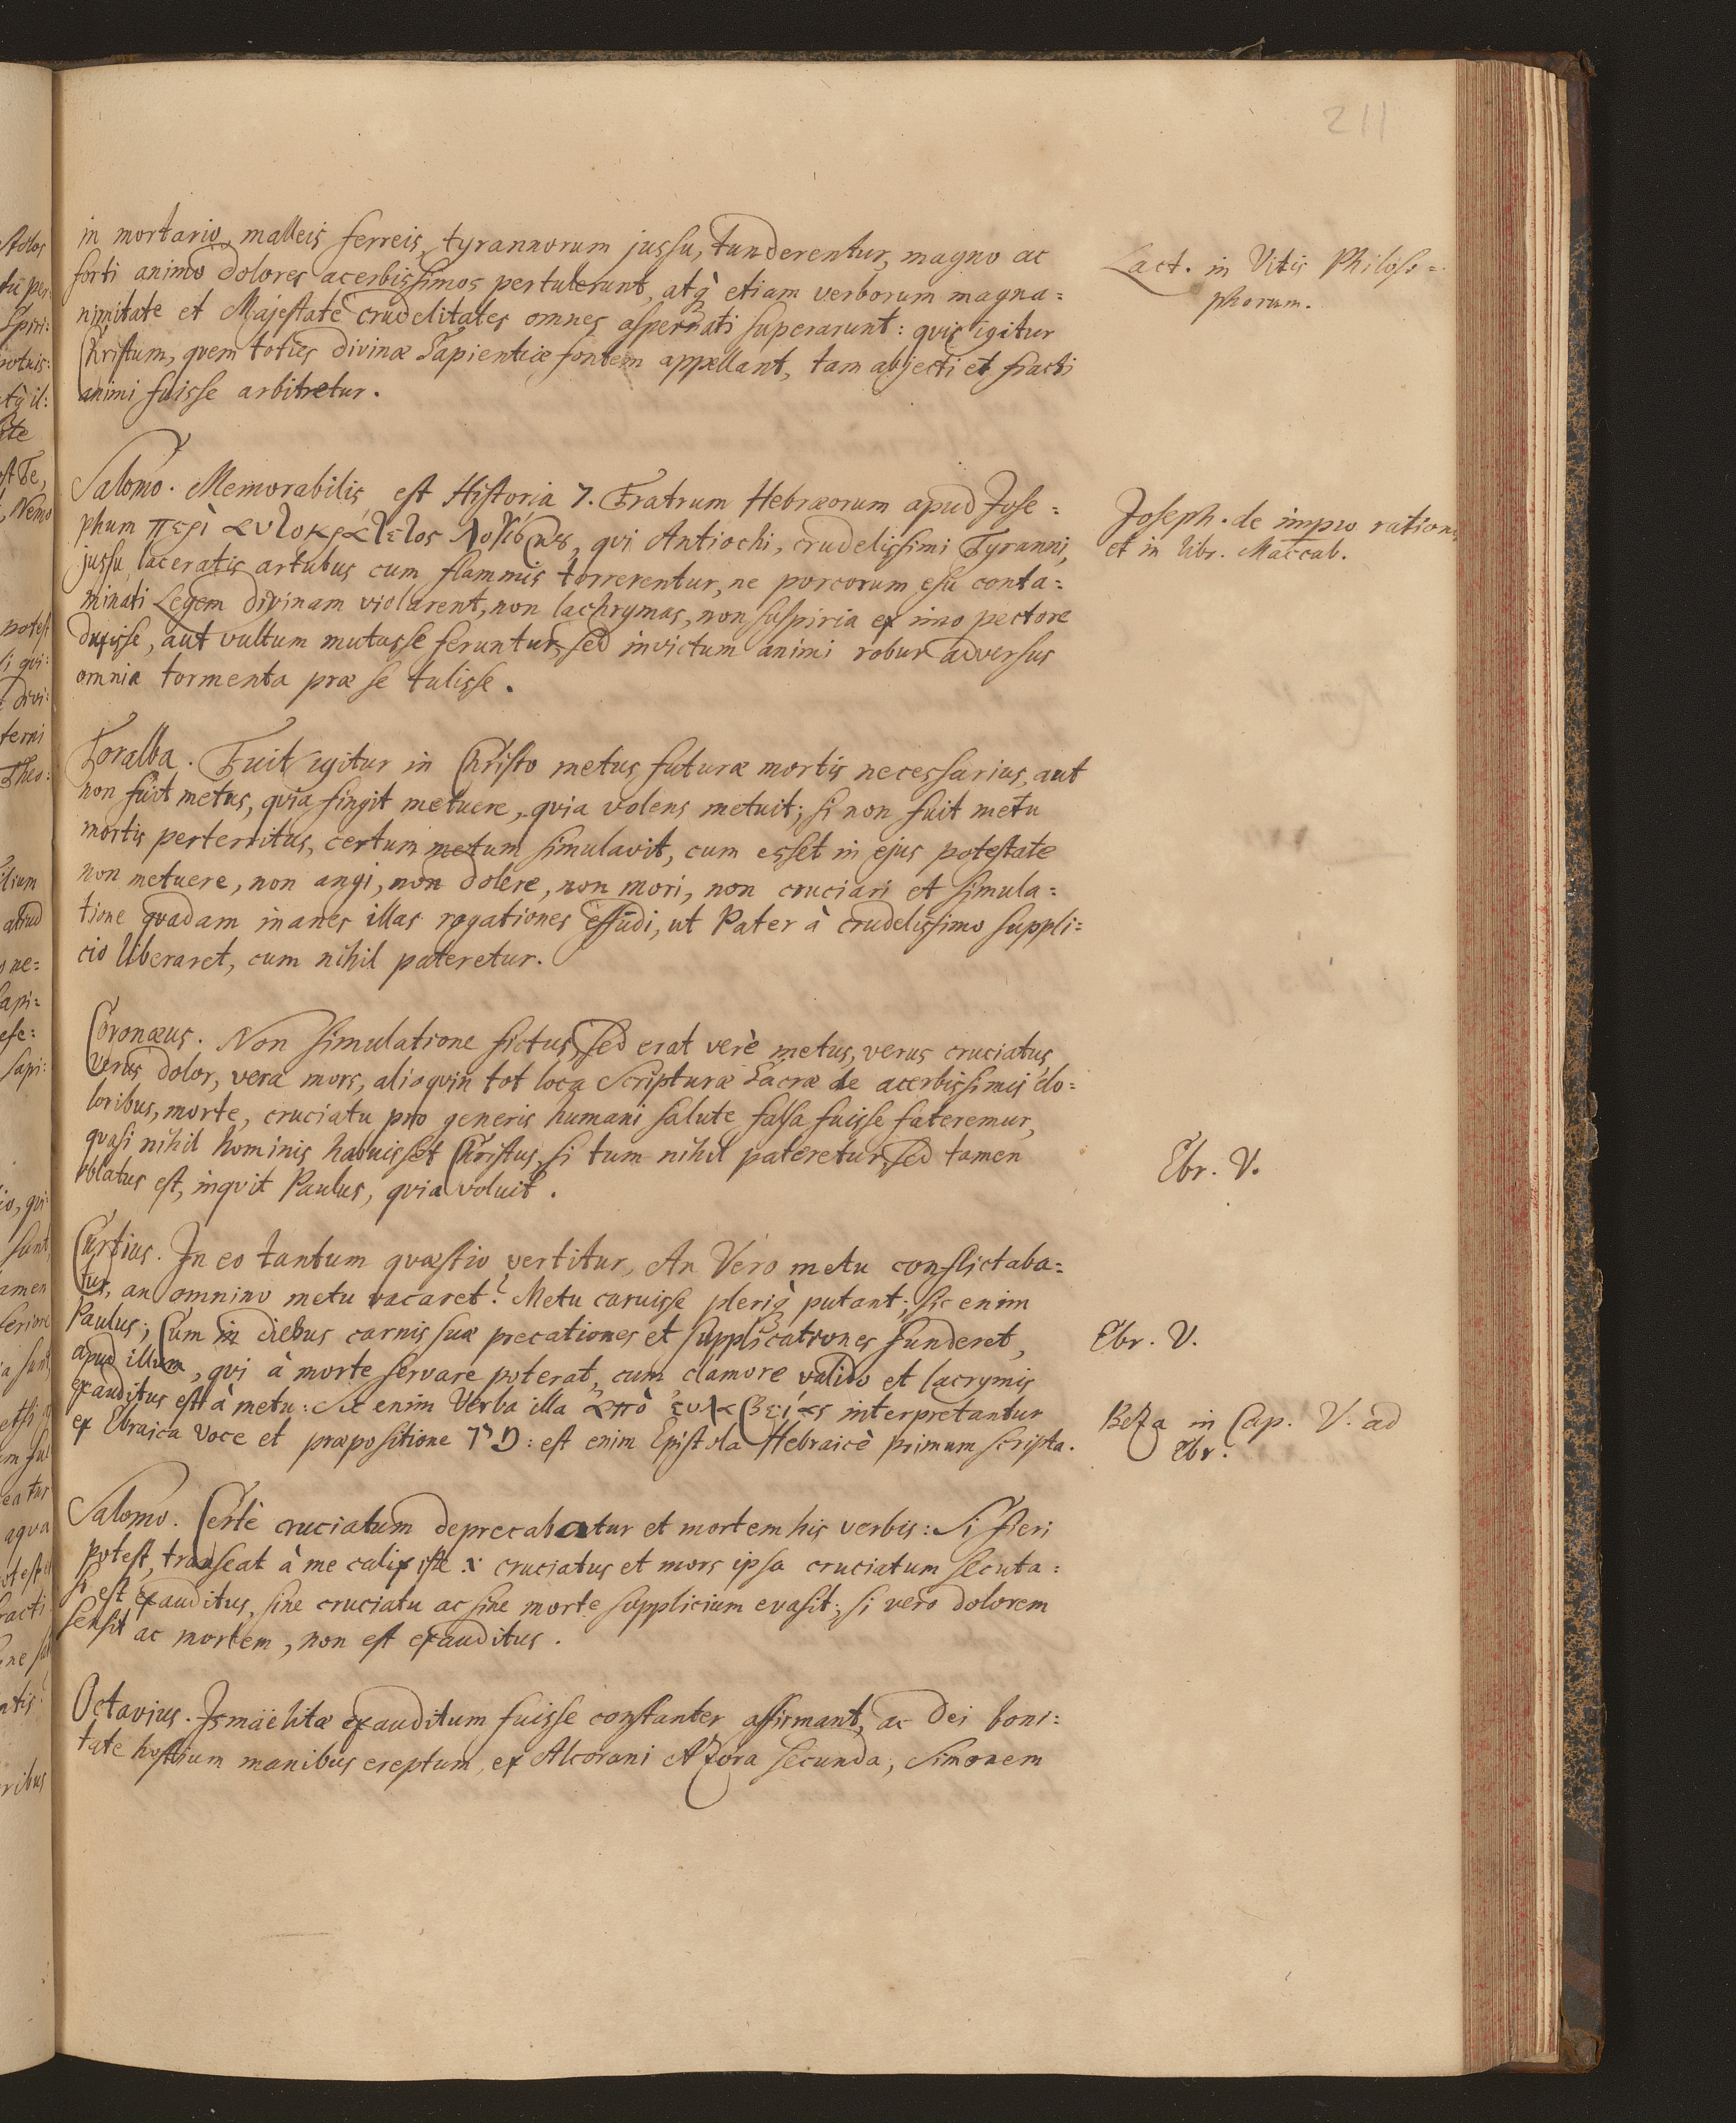 211
in mortario, malleis ferreis, tyrannorum jussu, tunderentur, magno ac
forti animo dolores acerbissimos pertulerunt, atq; etiam verborum magna=
nimitate et Majestate crudelitates omnes aspernati superarunt: quis igitur
Christum, quem toties divinæ Sapientiæ fontem appellant, tam abjecti et fracti
animi fuisse arbitretur.
Lact. in Vitis Philoso=
phorum.
Salomo. Memorabilis est Historia 7. Fratrum Hebræorum apud Jose=
phum περὶ αυτοκράτετος λογισμȣ, qui Antiochi, crudelissimi Tyranni,
jussu laceratis artubus cum flammis torrerentur, ne porcorum esu conta=
minati Legem divinam violarent, non lachrymas, non suspiria ex imo pectore
duxisse, aut vultum mutasse feruntur, sed invictum animi robur adversus
omnia tormenta præ se tulisse.
Joseph. de impio ration
et in libr. Maccab.
Toralba. Fuit igitur in Christo metus futuræ mortis necessarius, aut
non fuit metus, quia fingit metuere, quia volens metuit; si non fuit metu
mortis perterritus, certum metum simulavit, cum esset in ejus potestate
non metuere, non angi, non dolere, non mori, non cruciari et simula=
tione quadam inanes illas rogationes effudi, ut Pater à crudelissimo suppli=
cio liberaret, cum nihil pateretur.
Coronæus. Non simulatione fictus, sed erat verè metus, verus cruciatus,
verus dolor, vera mors, alioquin tot loca Scripturæ Sacræ de acerbissimis do=
loribus, morte, cruciatu pro generis humani salute falsa fuisse fateremur,
quasi nihil hominis habuisset Christus, si tum nihil pateretur, sed tamen
oblatus est, inquit Paulus, quia voluit.
Ebr. V.
Curtius. In eo tantum quæstio vertitur, An Vero metu conflictaba=
tur, an omnino metu vacaret? Metu caruisse pleriq; putant; sic enim
Paulus; Cum in diebus carnis suæ precationes et supplicationes funderet,
apud illum, qui à morte servare poterat, cum clamore valido et lacrymis
exauditus est à metu: Sic enim Verba illa ἀπὸ ἐυλαβείας interpretantur
ex Ebraica voce et præpositione מן: est enim Epistola Hebraicè primum scripta.
Ebr. V.
Beza in Cap. V. ad
Ebr.
Salomo. Certè cruciatum deprecabatur et mortem his verbis: Si fieri
potest, transeat à me calix iste .i. cruciatus et mors ipsa cruciatum secuta:
si est exauditus, sine cruciatu ac sine morte supplicium evasit; si vero dolorem
sensit ac mortem, non est exauditus.
Octavius. Ismaëlitæ exauditum fuisse constanter affirmant, ac Dei boni=
tate hostium manibus ereptum, ex Alcorani Azora secunda; Simonem